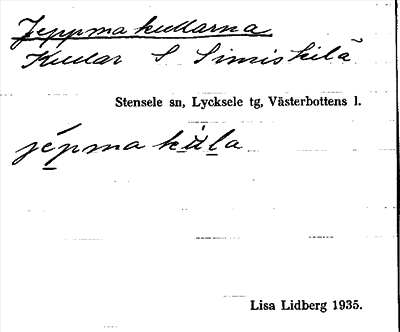 Jeppmakullarna
Kullar S Simiskilä
Stensele sn, Lycksele tg, Västerbottens l.
jépma kùla
Lisa Lidberg 1935.